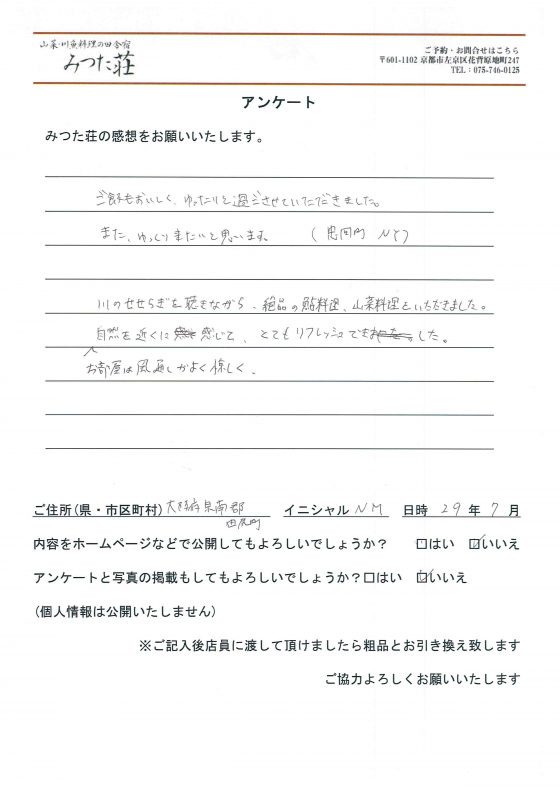 山菜・川魚料理の田舎宿
みつた荘
ご予約・お問合せはこちら
〒601-1102 京都市左京区花脊原地町247
TEL：075-746-0125
アンケート
みつた荘の感想をお願いいたします。
ご飯もおいしく、ゆったりと過ごさせていただきました。
また、ゆっくりきたいと思います。 (忠岡町 NY)
川のせせらぎを聴きながら、絶品の鮎料理、山菜料理をいただきました。
自然を近くに感じて、とてもリフレッシュできました。
お部屋は風通しがよく涼しく、
ご住所(県・市区町村) 大阪府泉南郡 イニシャル NM 日時 29 年 7 月
田尻町
内容をホームページなどで公開してもよろしいでしょうか？ □はい ☑いいえ
アンケートと写真の掲載もしてもよろしいでしょうか？□はい ☑いいえ
(個人情報は公開いたしません)
※ご記入後店員に渡して頂けましたら粗品とお引き換え致します
ご協力よろしくお願いいたします